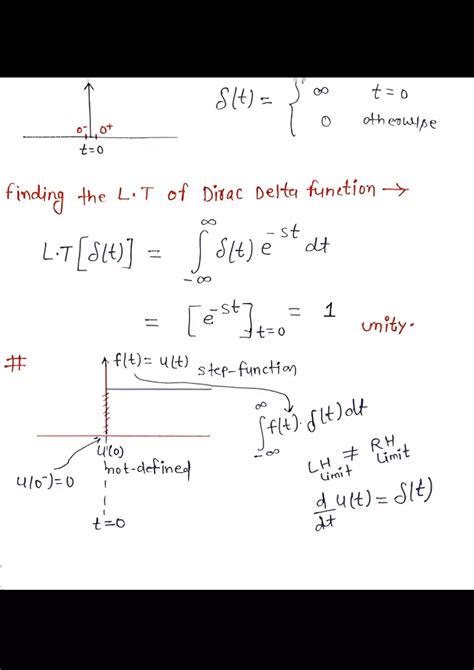 δ(t) = { ∞ t=0
0 otherwise
0⁻ 0⁺
t=0
finding the L.T of Dirac Delta function →
L.T[δ(t)] = ∫_{-∞}^{∞} δ(t) e^{-st} dt
= [e^{-st}]_{t=0} = 1 unity.
# f(t) = u(t) step-function
∫_{-∞}^{∞} f(t)·δ(t)dt
u(0) not-defined
u(0⁻)=0
t=0
LH Limit ≠ RH Limit
d/dt u(t) = δ(t)